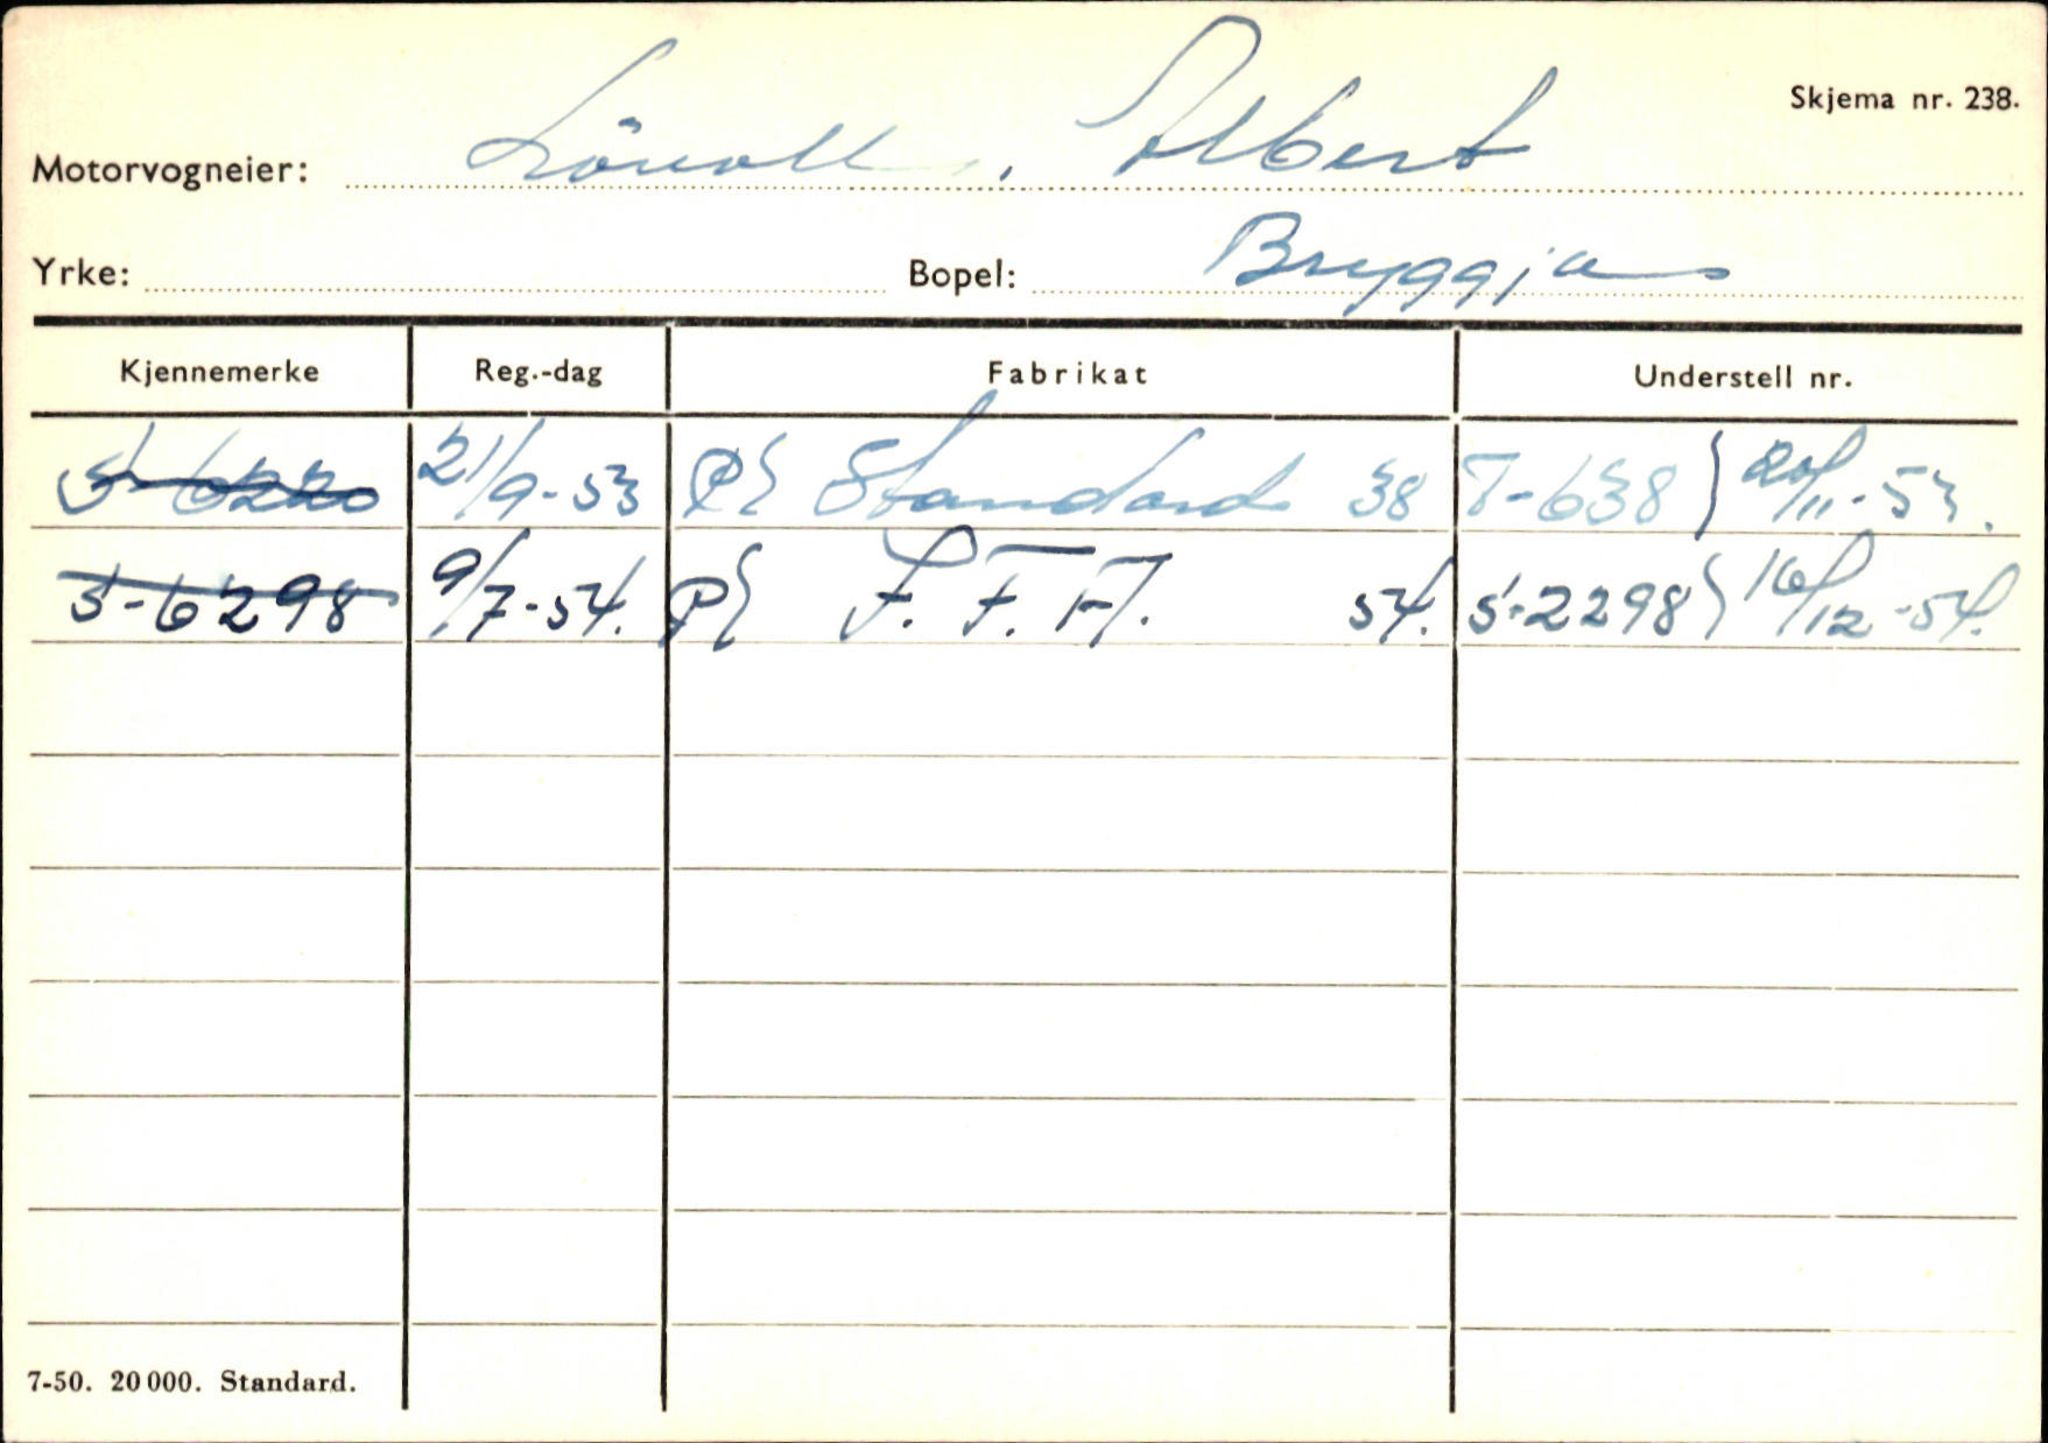 Skjema nr. 238.
Motorvogneier: Lövoll, Albert
Yrke: Bopel: Bryggja
Kjennemerke Reg.-dag Fabrikat Understell nr.
S-6220 21/9-53 P { Standard 38 T-638 } 20/11-53.
S-6298 9/7-54. P { F. F. H. 54. S-2298 } 16/12-54.
7-50. 20 000. Standard.